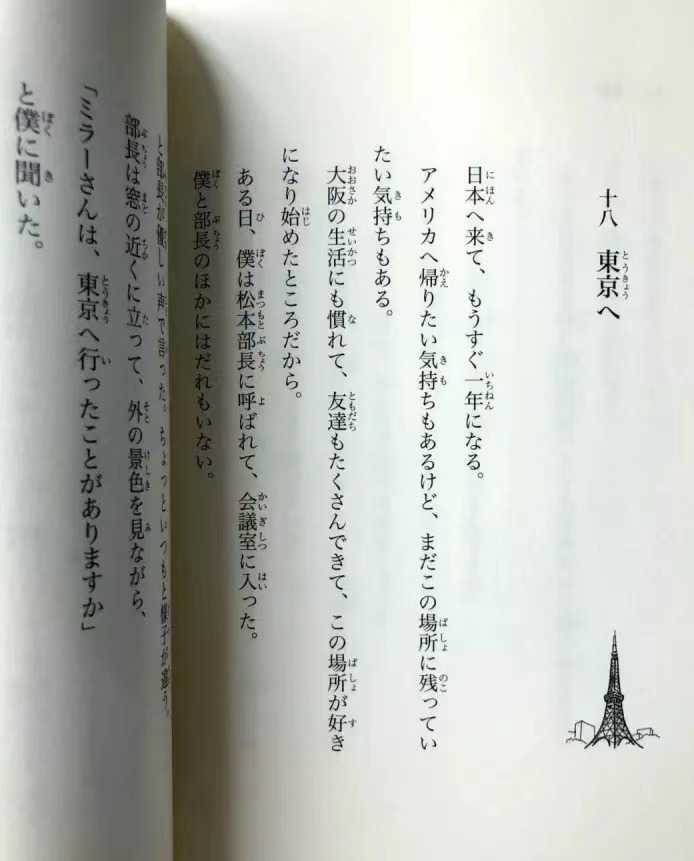 十八　東京へ
日本へ来て、もうすぐ一年になる。
アメリカへ帰りたい気持ちもあるけど、まだこの場所に残ってい
たい気持ちもある。
大阪の生活にも慣れて、友達もたくさんできて、この場所が好き
になり始めたところだから。
ある日、僕は松本部長に呼ばれて、会議室に入った。
僕と部長のほかにはだれもいない。
と部長が優しい声で言った。ちょっといつもと様子が違う。
部長は窓の近くに立って、外の景色を見ながら、
「ミラーさんは、東京へ行ったことがありますか」
と僕に聞いた。